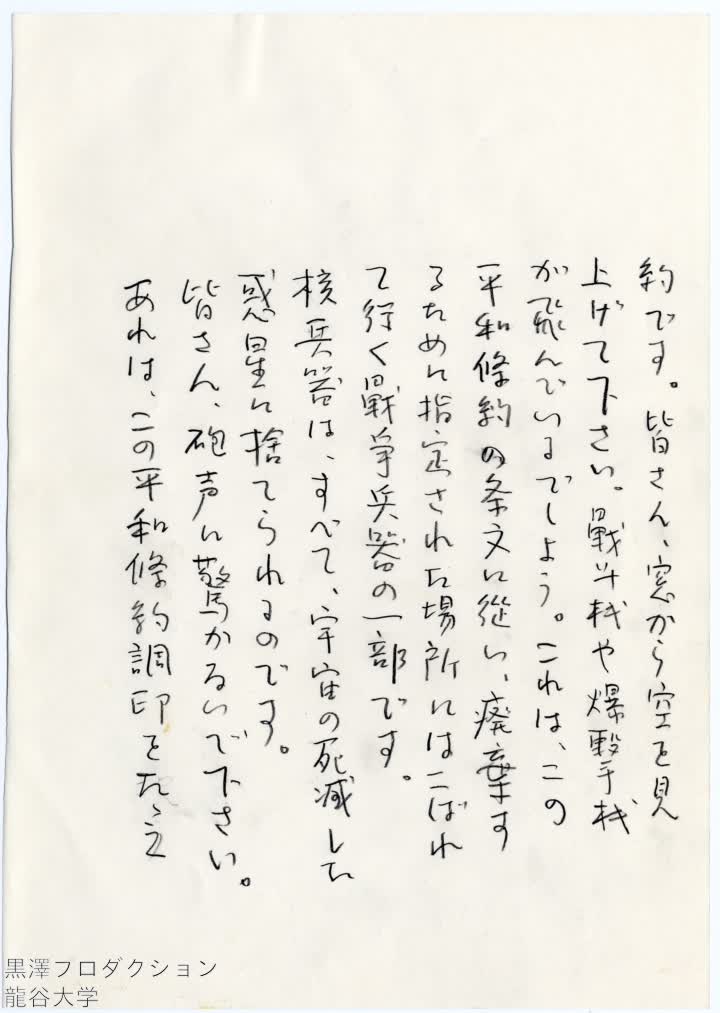 約です。皆さん、窓から空を見
上げて下さい。戦斗机や爆撃机
が飛んでいるでしょう。これは、この
平和條約の条文に従い、廃棄す
るために指定された場所にはこばれ
て行く戦争兵器の一部です。
核兵器は、すべて、宇宙の死滅した
惑星に捨てられるのです。
皆さん、砲声に驚かないで下さい。
あれは、この平和條約調印をたゝえ
黒澤プロダクション
龍谷大学